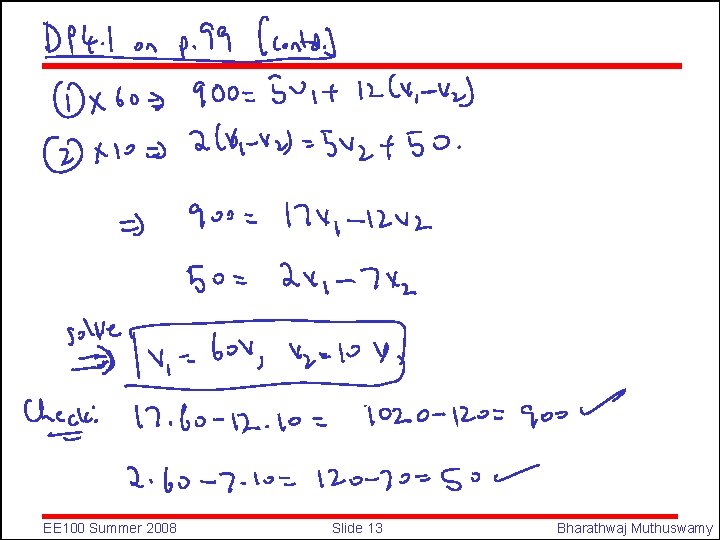 DP4.1 on p.99 (contd.)
① x 60 ⇒ 900 = 5v₁ + 12(v₁-v₂)
② x 10 ⇒ 2(v₁-v₂) = 5v₂ + 50.
⇒ 900 = 17v₁ - 12v₂
50 = 2v₁ - 7v₂
solve ⇒ v₁ = 60V, v₂ = 10 V.
Check: 17.60 - 12.10 = 1020 - 120 = 900 ✓
2.60 - 7.10 = 120 - 70 = 50 ✓
EE100 Summer 2008 Slide 13 Bharathwaj Muthuswamy